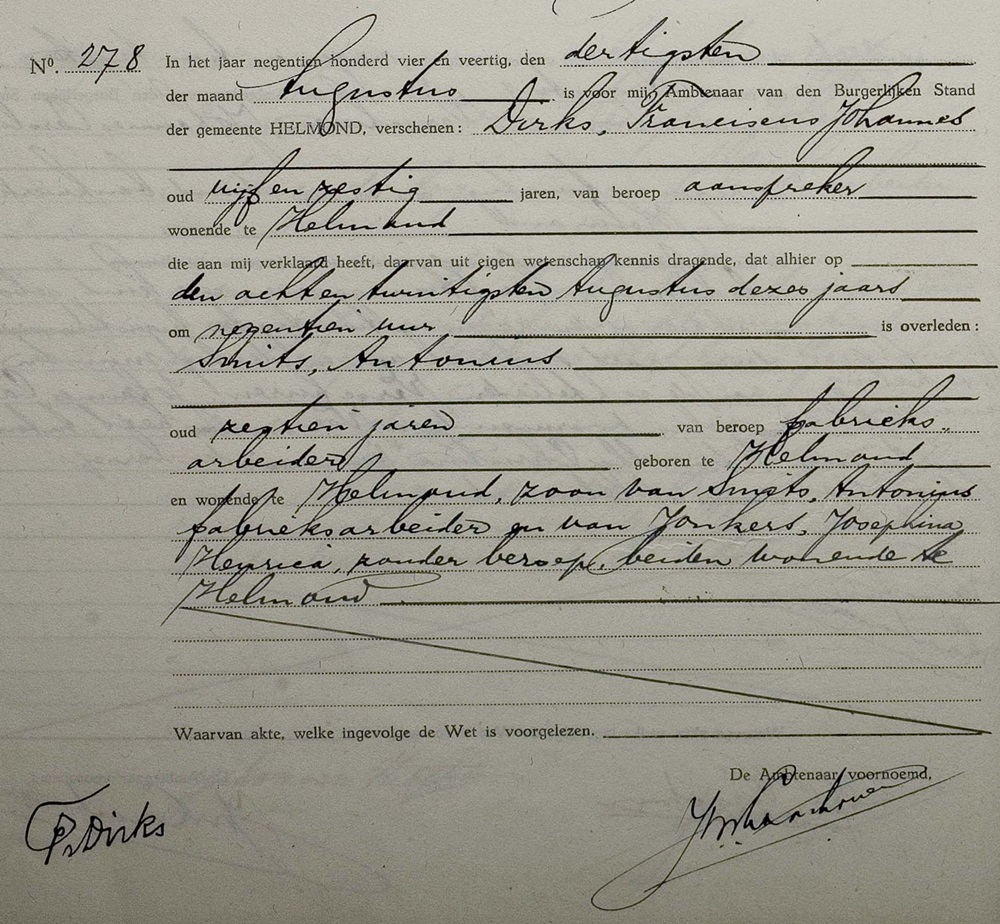 Nº. 278 In het jaar negentien honderd vier en veertig, den dertigsten
der maand Augustus is voor mij, Ambtenaar van den Burgerlijken Stand
der gemeente HELMOND, verschenen: Dirks, Franciscus Johannes
oud vijf en zestig jaren, van beroep aanspreker
wonende te Helmond
die aan mij verklaard heeft, daarvan uit eigen wetenschap kennis dragende, dat alhier op
den acht en twintigsten Augustus dezes jaars
om negentien uur is overleden:
Smits, Antonius
oud zestien jaren van beroep fabrieks-
arbeider geboren te Helmond
en wonende te Helmond, zoon van Smits, Antonius
fabrieksarbeider en van Jonkers, Josephina
Henrica, zonder beroep, beiden wonende te
Helmond
Waarvan akte, welke ingevolge de Wet is voorgelezen.
De Ambtenaar voornoemd,
Dirks